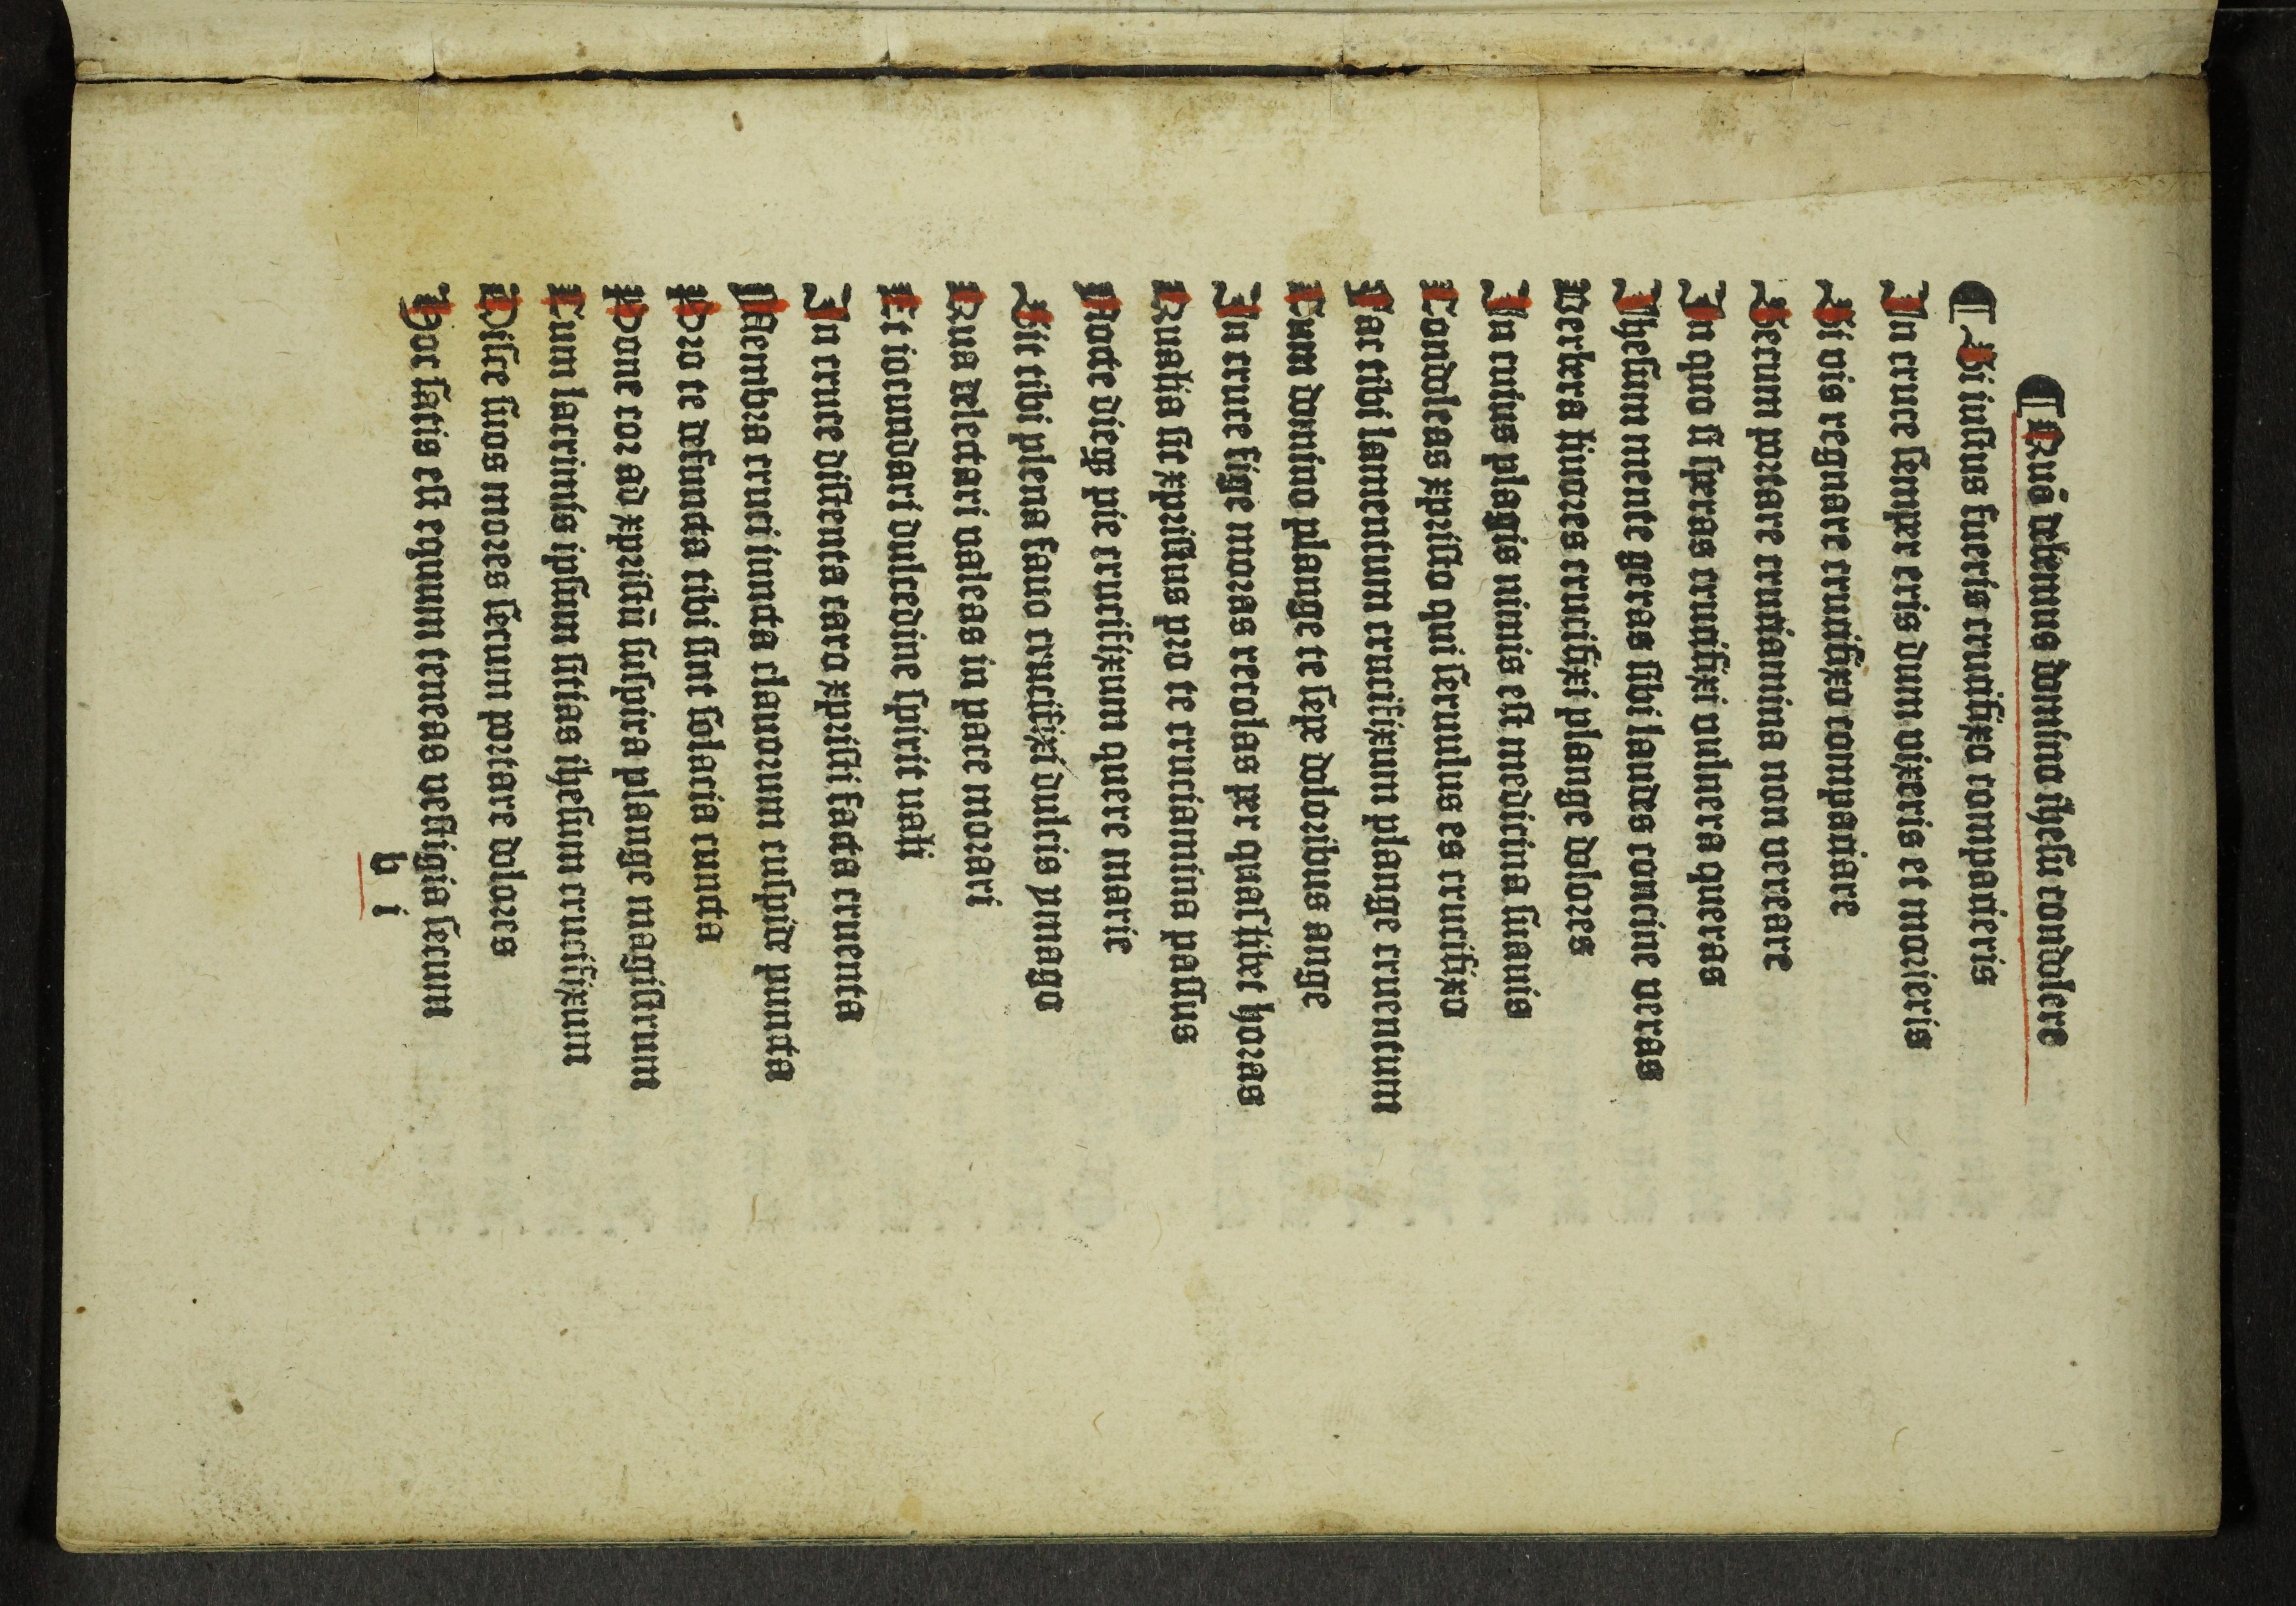 ¶ Quā debemus domino ihesu condolere
¶ Si iustus fueris crucifixo compacieris
In cruce semper eris dum vixeris et morieris
Si vis regnare crucifixo compaciare
Secum portare cruciamina non verеare
In quo si speras crucifixi vulnera queras
Ihesum mente geras sibi laudes concine veras
Verbera liuores crucifixi plange dolores
In cuius plagis nimis est medicina suauis
Condoleas xpristo qui seruulus es crucifixo
Fac tibi lamentum crucifixum plange cruentum
Cum domino plange te sepe doloribus ange
In cruce fige moras recolas per quaslibet horas
Qualia sit xpristus pro te cruciamina passus
Nocte dieqꝫ pie crucifixum quere marie
Sit tibi plena fauo crucifixi dulcis ymago
Qua delectari valeas in pace morari
Et iocundari dulcedine spirituali
In cruce distenta caro xpristi facta cruenta
Membra cruci iuncta clauorum cuspide puncta
Pro te defuncta tibi sint solacia cuncta
Pone cor ad xpristū suspira plange magistrum
Cum lacrimis ipsum sitias ihesum crucifixum
Disce suos mores secum portare dolores
Hoc satis est equum teneas vestigia secum
b i